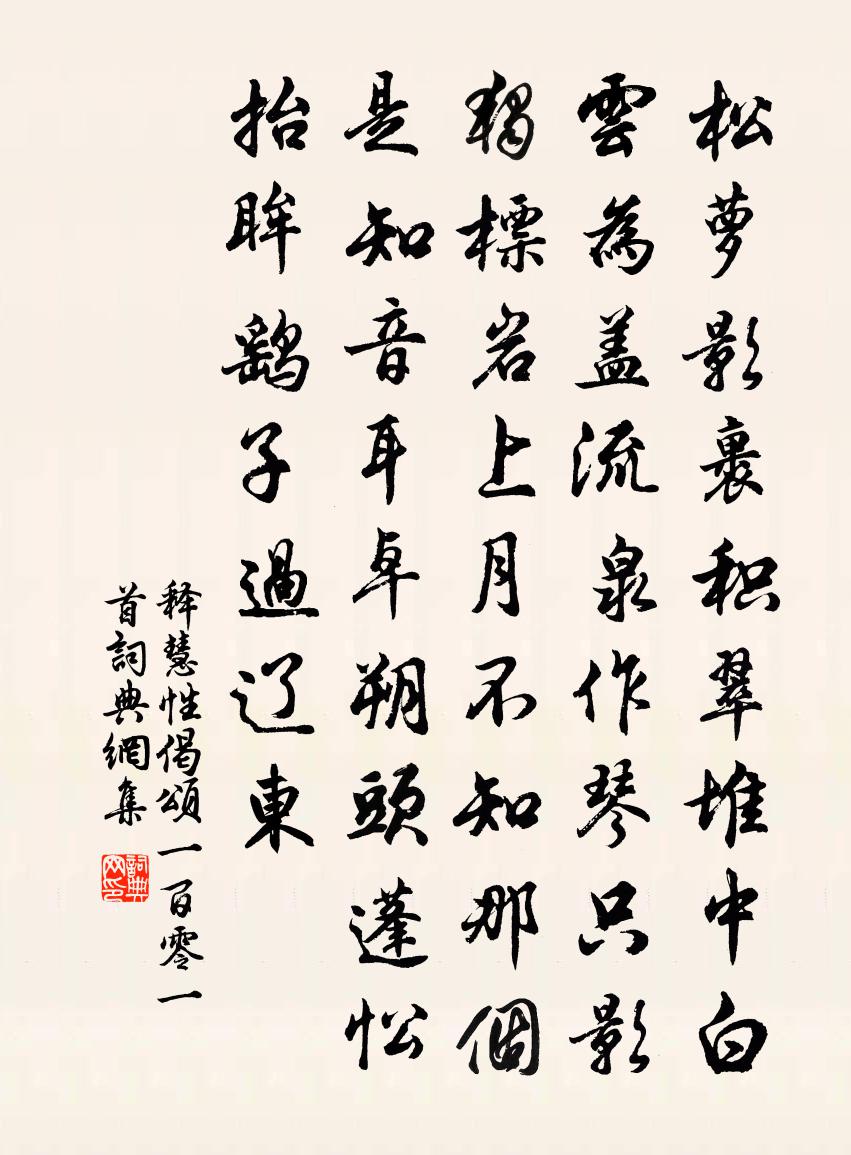 松萝影裏积翠堆中白
雲為盖流泉作琴只影
獨標岩上月不知那個
是知音耳卓朔頭蓬忪
抬眸鷂子過辽東
释慧性偈頌一百零一
首詞典網集
詞典
网印